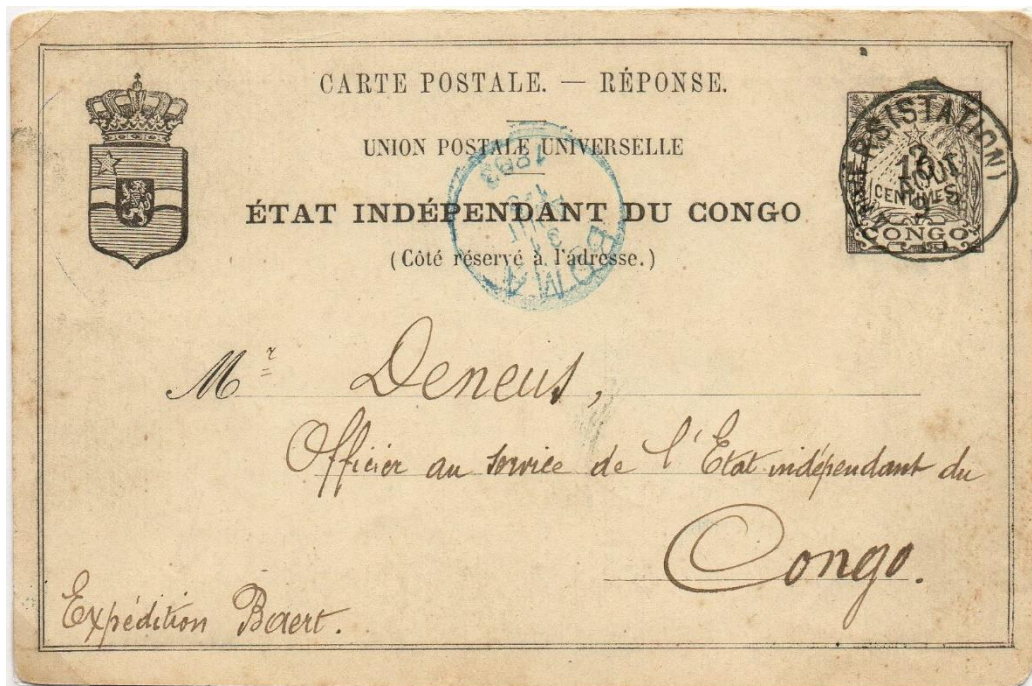 CARTE POSTALE. — RÉPONSE.
UNION POSTALE UNIVERSELLE
ÉTAT INDÉPENDANT DU CONGO
(Côté réservé à l'adresse.)
CENTIMES
CONGO
(STATION)
AOUT
BOMA
1893
Mr Deneus,
Officier au service de l'Etat indépendant du
Congo.
Expédition Baert.